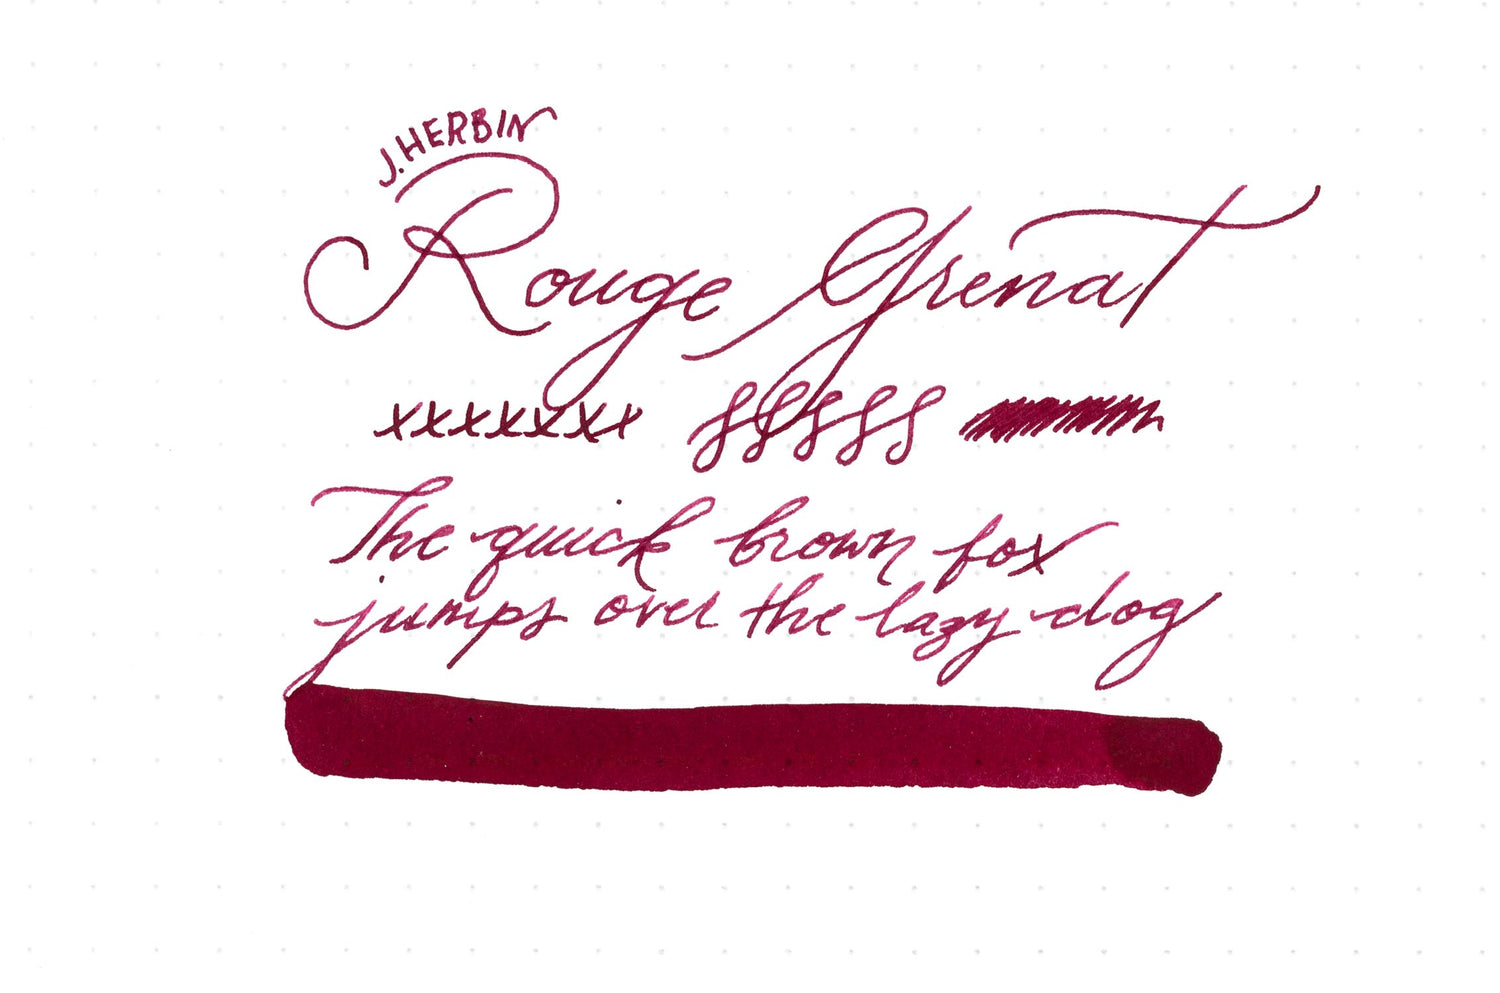 J. HERBIN
Rouge Grenat
xxxxxxx
The quick brown fox
jumps over the lazy dog